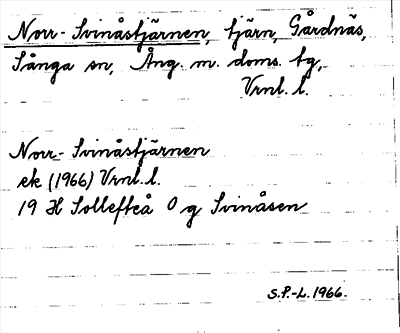 Norr-Svinåstjärnen, tjärn, Gårdnäs,
Sånga sn, Ång. m. doms. tg,
Vrnl. l.
Norr-Svinåstjärnen
ek (1966) Vrnl. l.
19 H Sollefteå O g Svinåsen
S.P.-L. 1966.